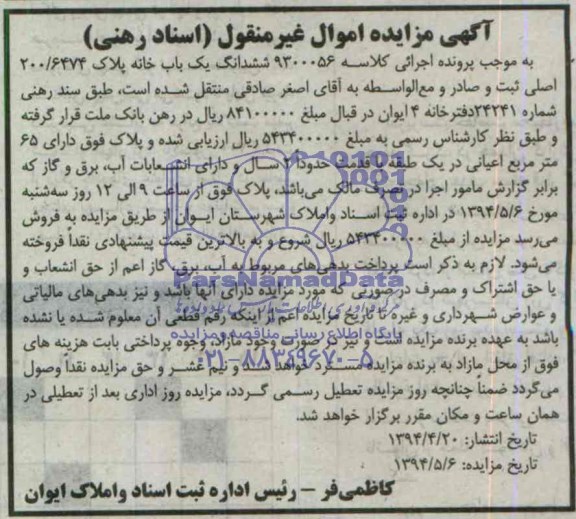 آگهی مزایده اموال غیرمنقول (اسناد رهنی)
به موجب پرونده اجرائی کلاسه ۹۳۰۰۰۵۶ ششدانگ یک باب خانه پلاک ۲۰۰/۶۴۷۴
اصلی ثبت و صادر و مع‌الواسطه به آقای اصغر صادقی منتقل شده است، طبق سند رهنی
شماره ۲۴۲۴۱دفترخانه ۴ ایوان در قبال مبلغ ۸۴۱۰۰۰۰۰ ریال در رهن بانک ملت قرار گرفته
و طبق نظر کارشناس رسمی به مبلغ ۵۴۳۴۰۰۰۰۰ ریال ارزیابی شده و پلاک فوق دارای ۶۵
متر مربع اعیانی در یک طبقه با قدمت حدودا ۲ سال و دارای انشعابات آب، برق و گاز که
برابر گزارش مامور اجرا در تصرف مالک می‌باشد، پلاک فوق از ساعت ۹ الی ۱۲ روز سه‌شنبه
مورخ ۱۳۹۴/۵/۶ در اداره ثبت اسناد واملاک شهرستان ایوان از طریق مزایده به فروش
می‌رسد مزایده از مبلغ ۵۴۳۴۰۰۰۰۰ ریال شروع و به بالاترین قیمت پیشنهادی نقداً فروخته
می‌شود. لازم به ذکر است پرداخت بدهی‌های مربوط به آب، برق، گاز اعم از حق انشعاب و
یا حق اشتراک و مصرف در صورتی که مورد مزایده دارای آنها باشد و نیز بدهی‌های مالیاتی
و عوارض شهرداری و غیره تا تاریخ مزایده اعم از اینکه رقم قطعی آن معلوم شده یا نشده
باشد به عهده برنده مزایده است و نیز در صورت وجود مازاد، وجوه پرداختی بابت هزینه های
فوق از محل مازاد به برنده مزایده مسترد خواهد شد و نیم عشر و حق مزایده نقداً وصول
می‌گردد ضمناً چنانچه روز مزایده تعطیل رسمی گردد، مزایده روز اداری بعد از تعطیلی در
همان ساعت و مکان مقرر برگزار خواهد شد.
تاریخ انتشار: ۱۳۹۴/۴/۲۰
تاریخ مزایده: ۱۳۹۴/۵/۶
کاظمی‌فر – رئیس اداره ثبت اسناد واملاک ایوان
ParsNamadData
پایگاه اطلاع رسانی مناقصه و مزایده
۰۲۱-۸۸۳۴۹۶۷۰-۵